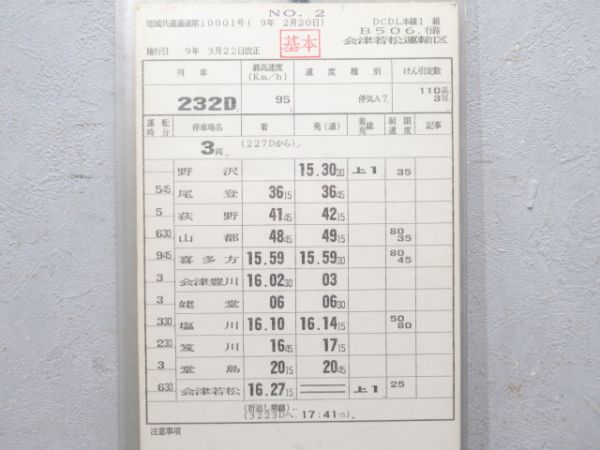 NO. 2
地域共通運達第10001号( 9年 2月20日)
DCDL本線1 組
B506. 行路
会津若松運輸区
施行日 9年 3月22日改正
基本
列車 最高速度(Km/h) 速度種別 けん引定数
232D 95 停気A7. 110系 3M.
運転時分 停車場名 着 発(通) 着線発線 制限速度 記事
3両. (227Dから).
野沢 15.30 30 上1 35
545 尾登 36 15 36 45
5 荻野 41 45 42 15
630 山都 48 45 49 15 80 35
945 喜多方 15.59 15.59 30 80 45
3 会津豊川 16.02 30 03
3 姥堂 06 06 30
330 塩川 16.10 16.14 15 50 80
230 笈川 16 45 17 15
3 堂島 20 15 20 45
630 会津若松 16.27 15 上1 25
(折返し乗組)..
(3223Dへ. 17:41 15).
注意事項